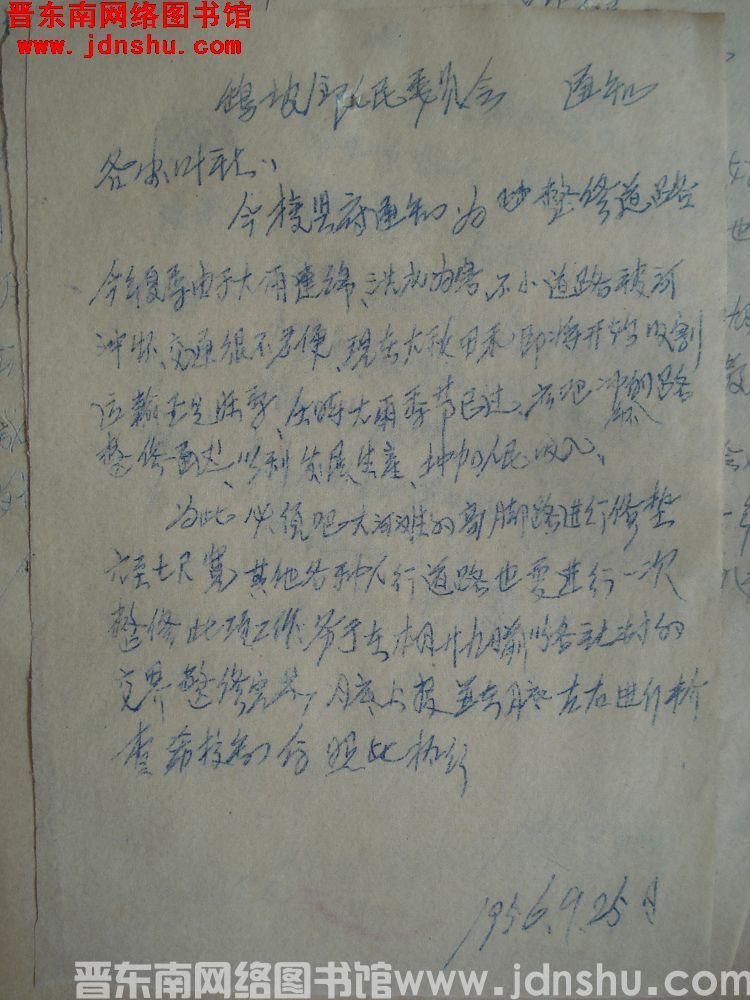 晋东南网络图书馆
www.jdnshu.com
坡乡人民委员会 通知
各农业社：
今接县府通知为 整修道路
今年夏季由于大雨连绵、洪水为害、不小道路被河
冲坏、交通很不方便、现在大秋田禾即将开始收割
运输、全时大雨季节已过、应把冲坏的路
整修、以利发展生产、增加人民收入、
为此必须把大河滩的高脚路进行修垫
六至七尺宽其他各种人行道路也要进行一次
整修此项工作务于在本月廿九日前各社村的
交界整修完毕，月底上报并在月底左右进行检
查希接知后照此执行
1956.9.25日
晋东南网络图书馆www.jdnshu.com